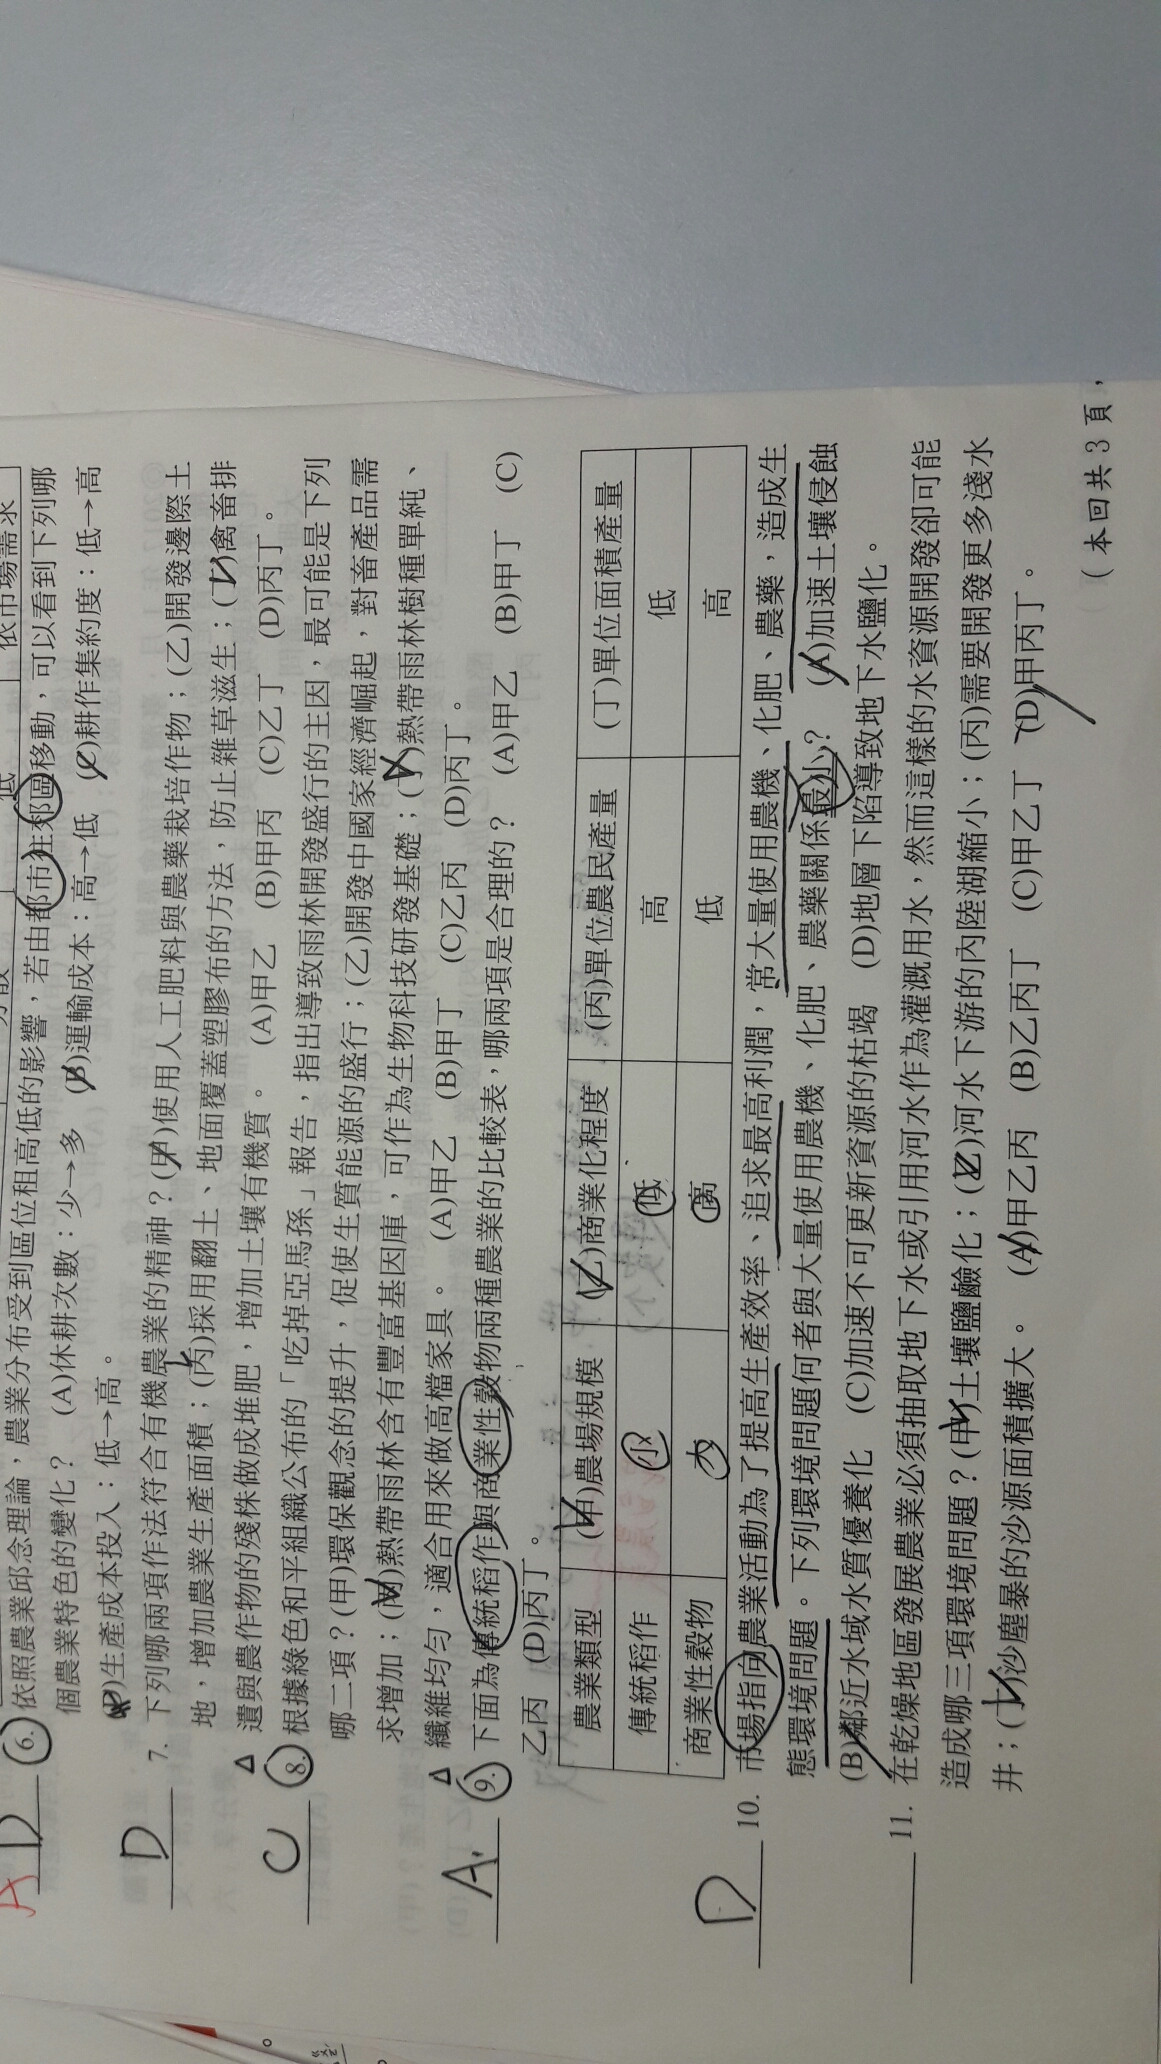 依市場需求
6. 依照農業邱念理論，農業分布受到區位租高低的影響，若由都市往郊區移動，可以看到下列哪
個農業特色的變化？ (A)休耕次數：少→多 (B)運輸成本：高→低 (C)耕作集約度：低→高
(D)生產成本投入：低→高。
D 7. 下列哪兩項作法符合有機農業的精神？(甲)使用人工肥料與農藥栽培作物；(乙)開發邊際土
地，增加農業生產面積；(丙)採用翻土、地面覆蓋塑膠布的方法，防止雜草滋生；(丁)禽畜排
遺與農作物的殘株做成堆肥，增加土壤有機質。 (A)甲乙 (B)甲丙 (C)乙丁 (D)丙丁。
C 8. 根據綠色和平組織公布的「吃掉亞馬孫」報告，指出導致雨林開發盛行的主因，最可能是下列
哪二項？(甲)環保觀念的提升，促使生質能源的盛行；(乙)開發中國家經濟崛起，對畜產品需
求增加；(丙)熱帶雨林含有豐富基因庫，可作為生物科技研發基礎；(丁)熱帶雨林樹種單純、
纖維均勻，適合用來做高檔家具。 (A)甲乙 (B)甲丁 (C)乙丙 (D)丙丁。
A 9. 下面為傳統稻作與商業性穀物兩種農業的比較表，哪兩項是合理的？ (A)甲乙 (B)甲丁 (C)
乙丙 (D)丙丁。
農業類型 (甲)農場規模 (乙)商業化程度 (丙)單位農民產量 (丁)單位面積產量
傳統稻作 小 低 高 低
商業性穀物 大 高 低 高
D 10. 市場指向農業活動為了提高生產效率、追求最高利潤，常大量使用農機、化肥、農藥，造成生
態環境問題。下列環境問題何者與大量使用農機、化肥、農藥關係最小？ (A)加速土壤侵蝕
(B)鄰近水域水質優養化 (C)加速不可更新資源的枯竭 (D)地層下陷導致地下水鹽化。
11. 在乾燥地區發展農業必須抽取地下水或引用河水作為灌溉用水，然而這樣的水資源開發卻可能
造成哪三項環境問題？(甲)土壤鹽鹼化；(乙)河水下游的內陸湖縮小；(丙)需要開發更多淺水
井；(丁)沙塵暴的沙源面積擴大。 (A)甲乙丙 (B)乙丙丁 (C)甲乙丁 (D)甲丙丁。
(本回共3頁，